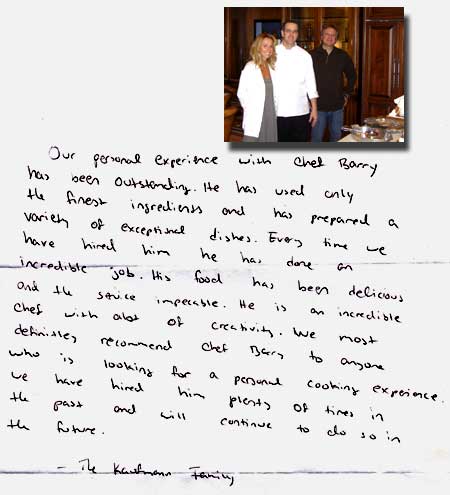 Our personal experience with Chef Barry
has been outstanding. He has used only
the finest ingredients and has prepared a
variety of exceptional dishes. Every time we
have hired him he has done an
incredible job. His food has been delicious
and the service impecable. He is an incredible
chef with alot of creativity. We most
definitley recommend Chef Barry to anyone
who is looking for a personal cooking experience.
We have hired him plenty of times in
the past and will continue to do so in
the future.
- The Kaufmann Family